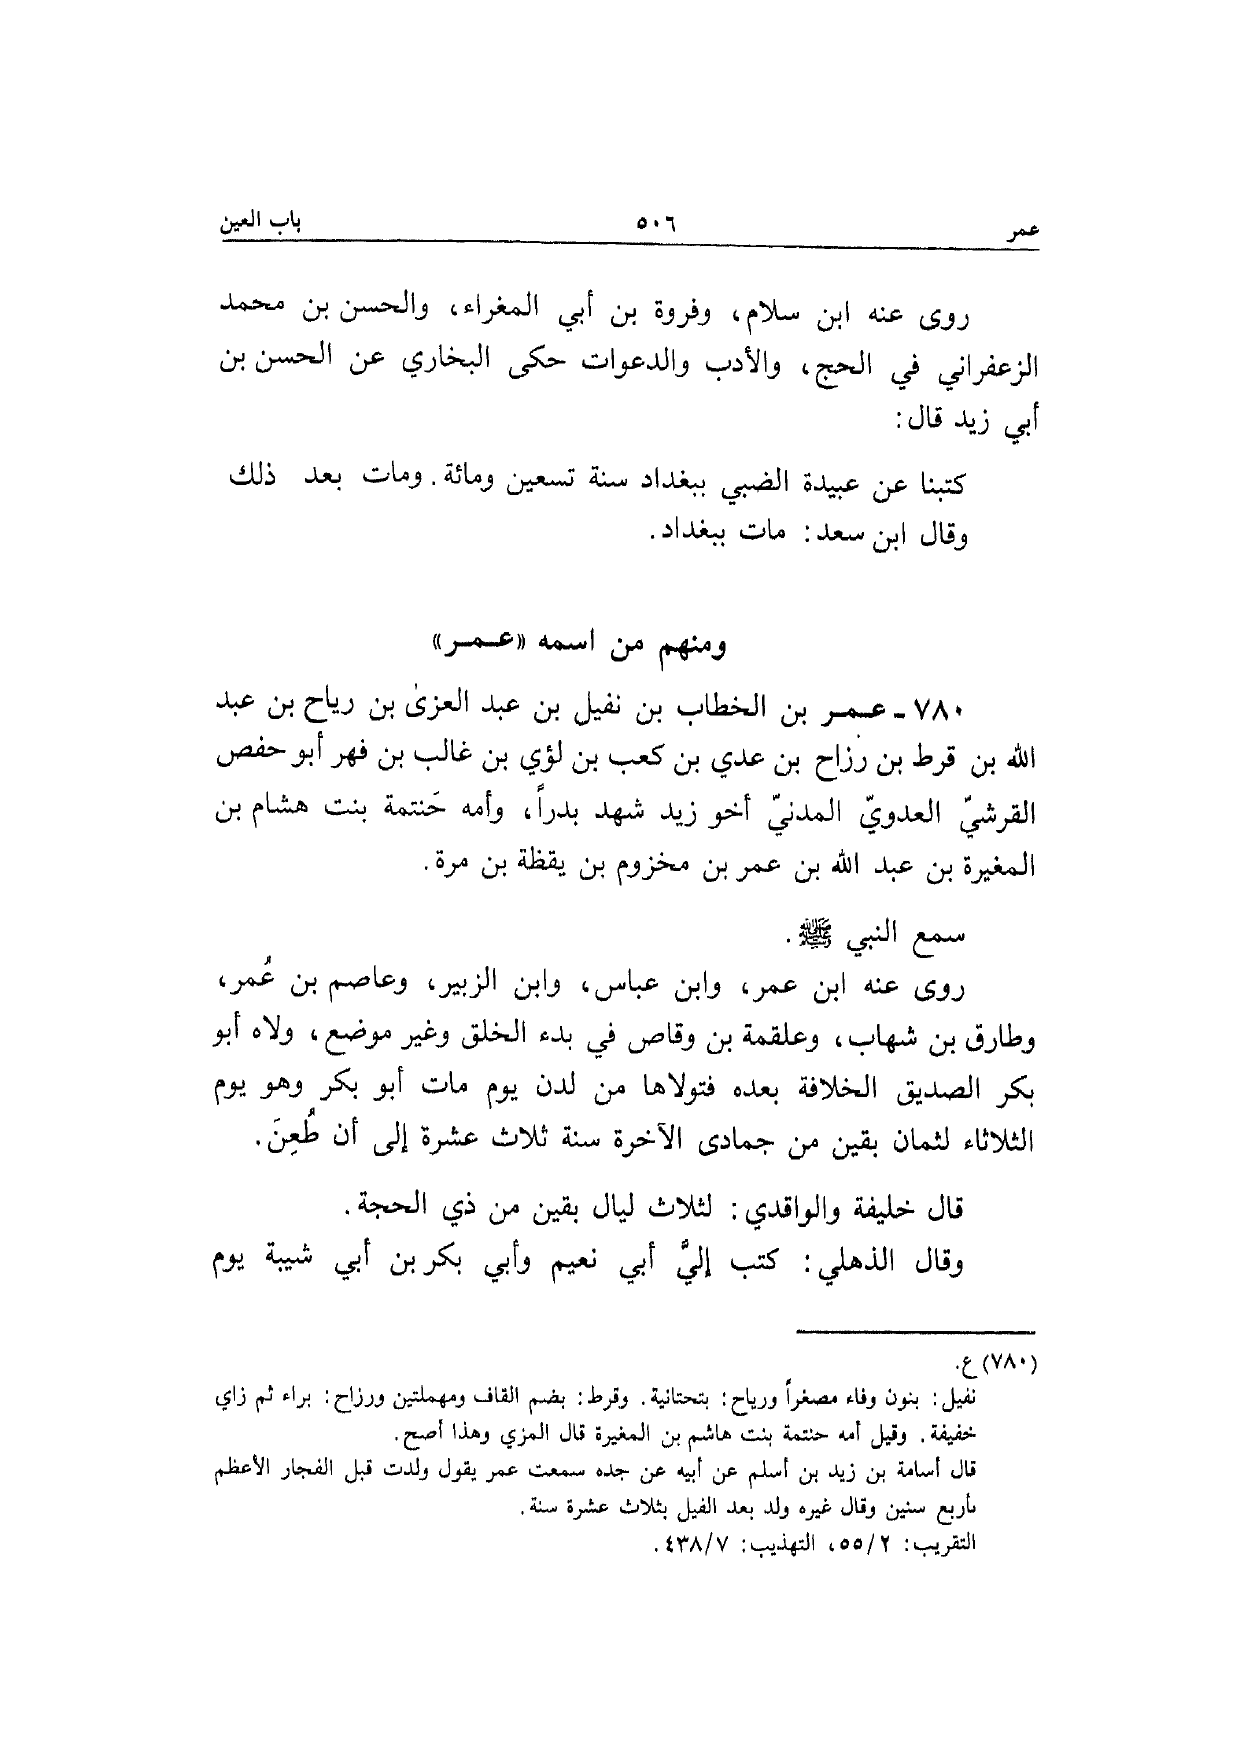 عمر ٥٠٦ باب العين
روى عنه ابن سلام، وفروة بن أبي المغراء، والحسن بن محمد
الزعفراني في الحج، والأدب والدعوات حكى البخاري عن الحسن بن
أبي زيد قال:
كتبنا عن عبيدة الضبي ببغداد سنة تسعين ومائة. ومات بعد ذلك
وقال ابن سعد: مات ببغداد.
ومنهم من اسمه «عمر»
٧٨٠ - عمر بن الخطاب بن نفيل بن عبد العزىٰ بن رياح بن عبد
الله بن قرط بن رزاح بن عدي بن كعب بن لؤي بن غالب بن فهر أبو حفص
القرشيّ العدويّ المدنيّ أخو زيد شهد بدراً، وأمه حَنتمة بنت هشام بن
المغيرة بن عبد الله بن عمر بن مخزوم بن يقظة بن مرة.
سمع النبي ﷺ.
روى عنه ابن عمر، وابن عباس، وابن الزبير، وعاصم بن عُمر،
وطارق بن شهاب، وعلقمة بن وقاص في بدء الخلق وغير موضع، ولاه أبو
بكر الصديق الخلافة بعده فتولاها من لدن يوم مات أبو بكر وهو يوم
الثلاثاء لثمان بقين من جمادى الآخرة سنة ثلاث عشرة إلى أن طُعِنَ.
قال خليفة والواقدي: لثلاث ليال بقين من ذي الحجة.
وقال الذهلي: كتب إليَّ أبي نعيم وأبي بكر بن أبي شيبة يوم
(٧٨٠) ع.
نفيل: بنون وفاء مصغراً ورياح: بتحتانية. وقرط: بضم القاف ومهملتين ورزاح: براء ثم زاي
خفيفة. وقيل أمه حنتمة بنت هاشم بن المغيرة قال المزي وهذا أصح.
قال أسامة بن زيد بن أسلم عن أبيه عن جده سمعت عمر يقول ولدت قبل الفجار الأعظم
بأربع سنين وقال غيره ولد بعد الفيل بثلاث عشرة سنة.
التقريب: ٥٥/٢، التهذيب: ٤٣٨/٧.